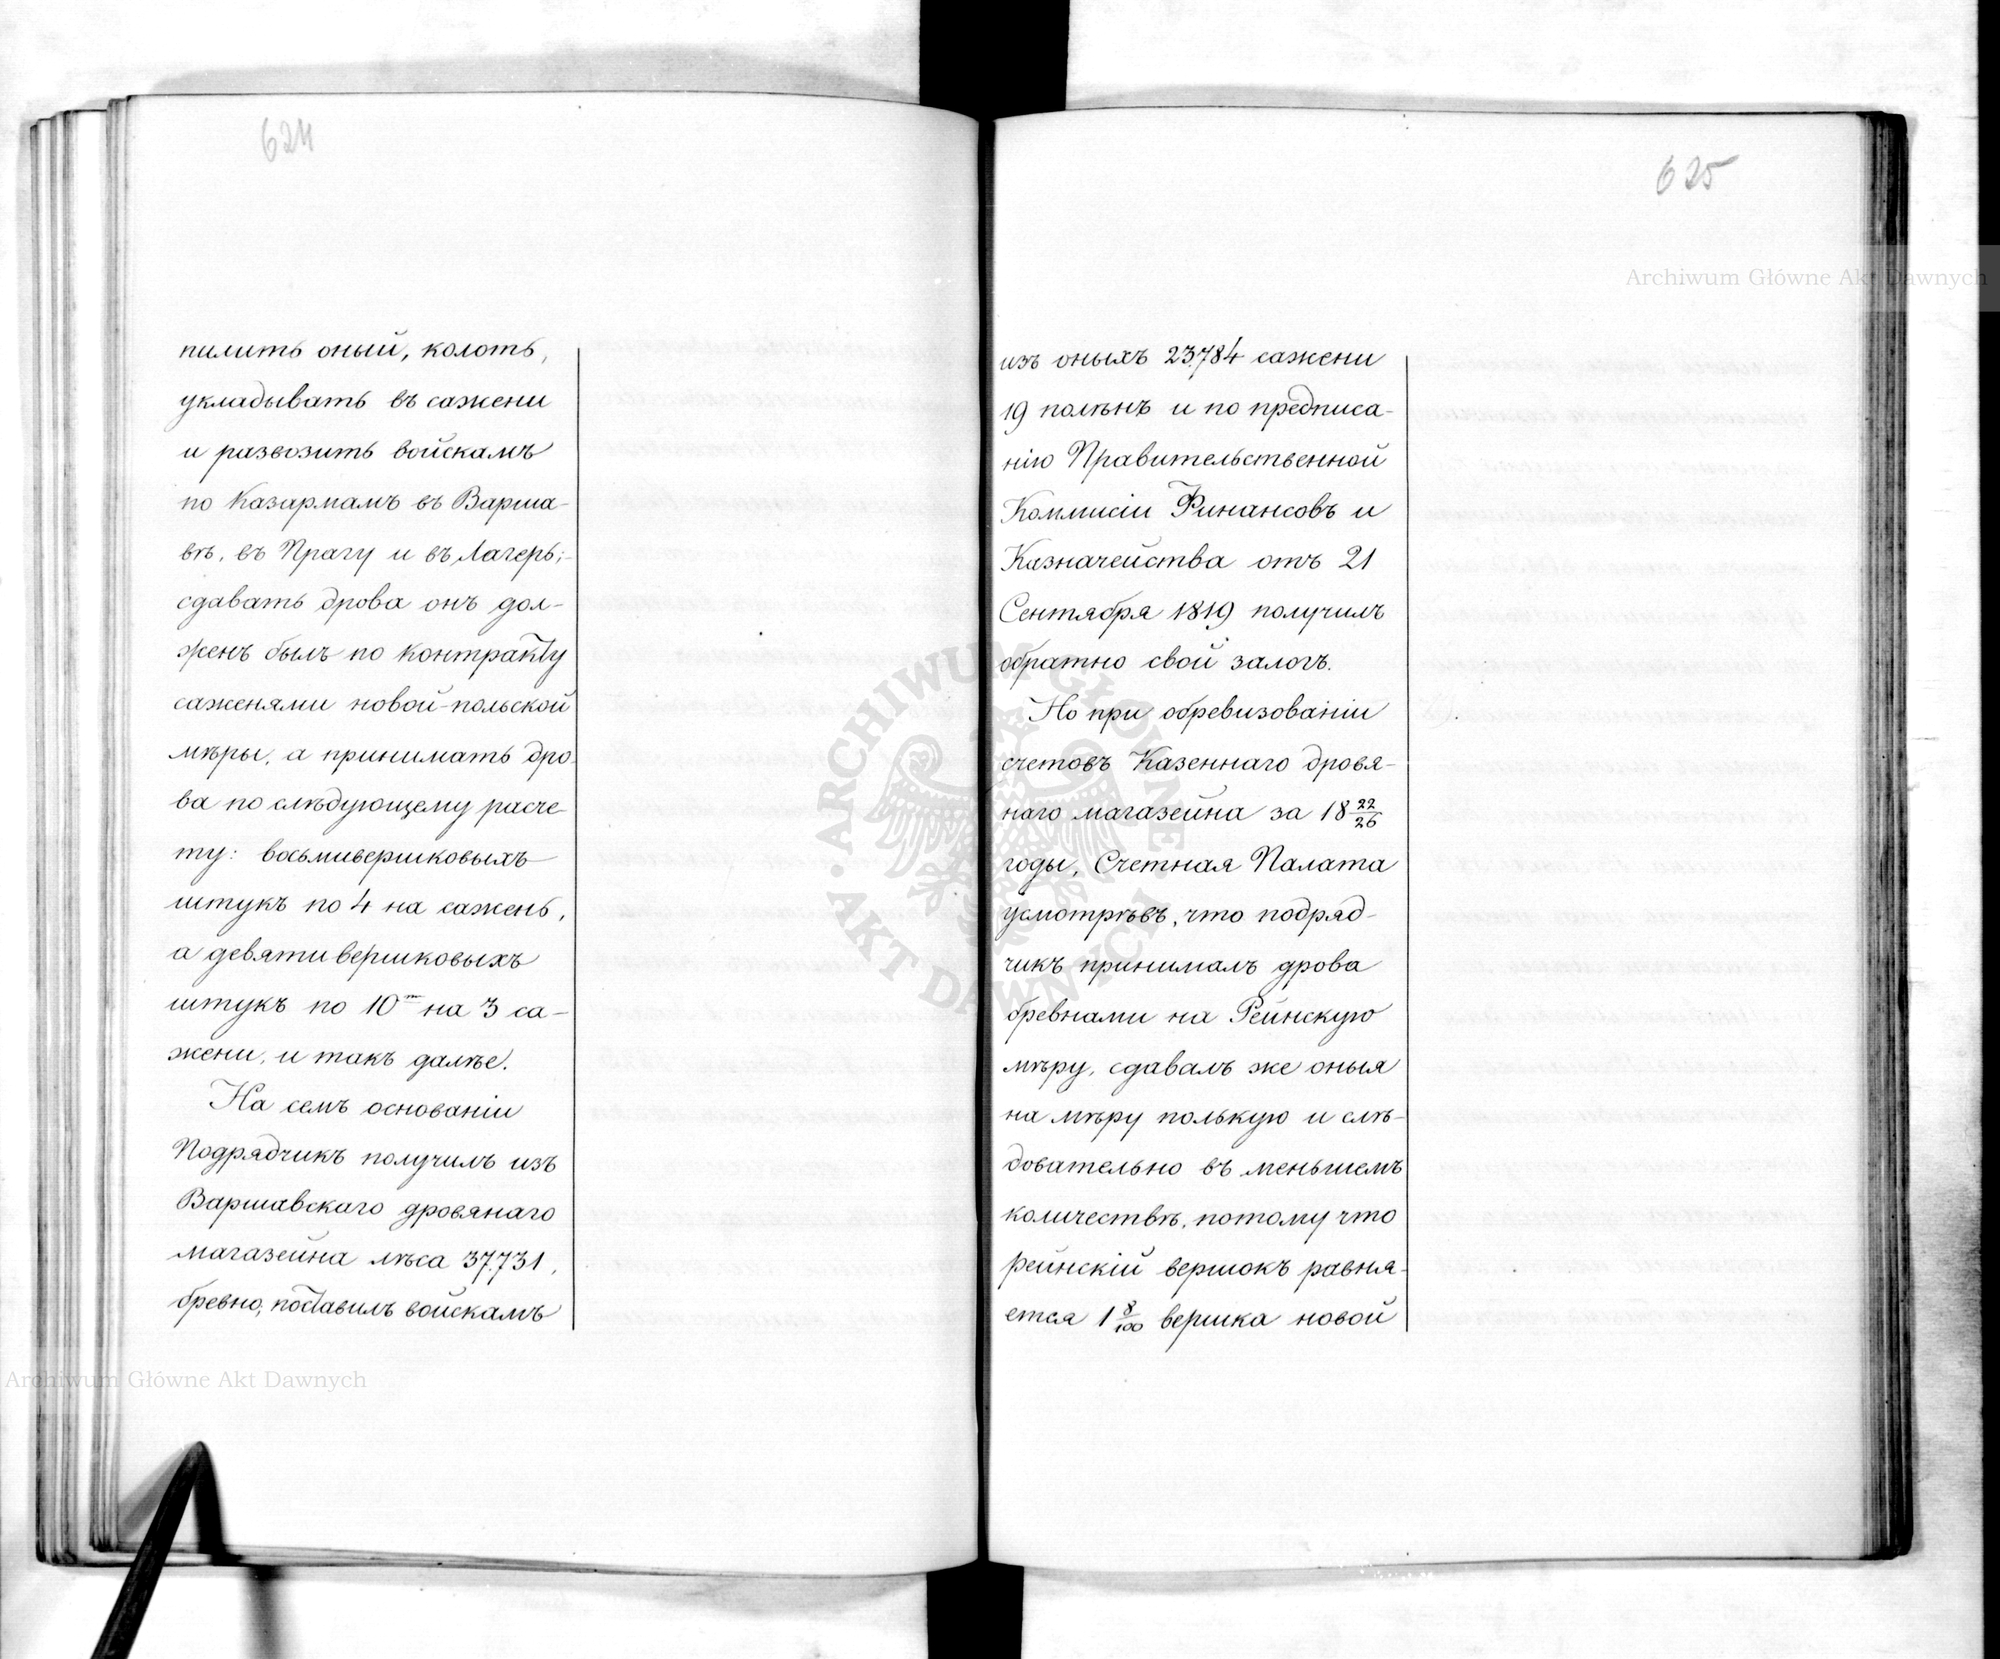 624
пилить оный, колоть,
укладывать въ сажени
и развозить войскамъ
по Казармамъ въ Варша-
вѣ, въ Прагу и въ Лагерь;-
сдавать дрова онъ дол-
женъ былъ по контракту
саженями новой-польской
мѣры, а принимать дро-
ва по слѣдующему расче-
ту: восьмивершковыхъ
штукъ по 4 на сажень,
а девятивершковыхъ
штукъ по 10ᵐ на 3 са-
жени, и такъ далѣе.
На семъ основаніи
Подрядчикъ получилъ изъ
Варшавскаго дровянаго
магазейна лѣса 37.731,
бревно, поставилъ войскамъ
625
изъ оныхъ 23.784 сажени
19 полѣнъ и по предписа-
нію Правительственной
Коммисіи Финансовъ и
Казначейства отъ 21
Сентября 1819 получилъ
обратно свой залогъ.
Но при обревизованіи
счетовъ Казеннаго дровя-
наго магазейна за 18 22/26
годы, Счетная Палата
усмотрѣвъ, что подряд-
чикъ принималъ дрова
бревнами на Рейнскую
мѣру, сдавалъ же оныя
на мѣру полькую и слѣ-
довательно въ меньшемъ
количествѣ, потому что
рейнскій вершокъ равня-
ется 1 8/100 вершка новой
Archiwum Główne Akt Dawnych
Archiwum Główne Akt Dawnych
ARCHIWUM GŁÓWNE AKT DAWNYCH